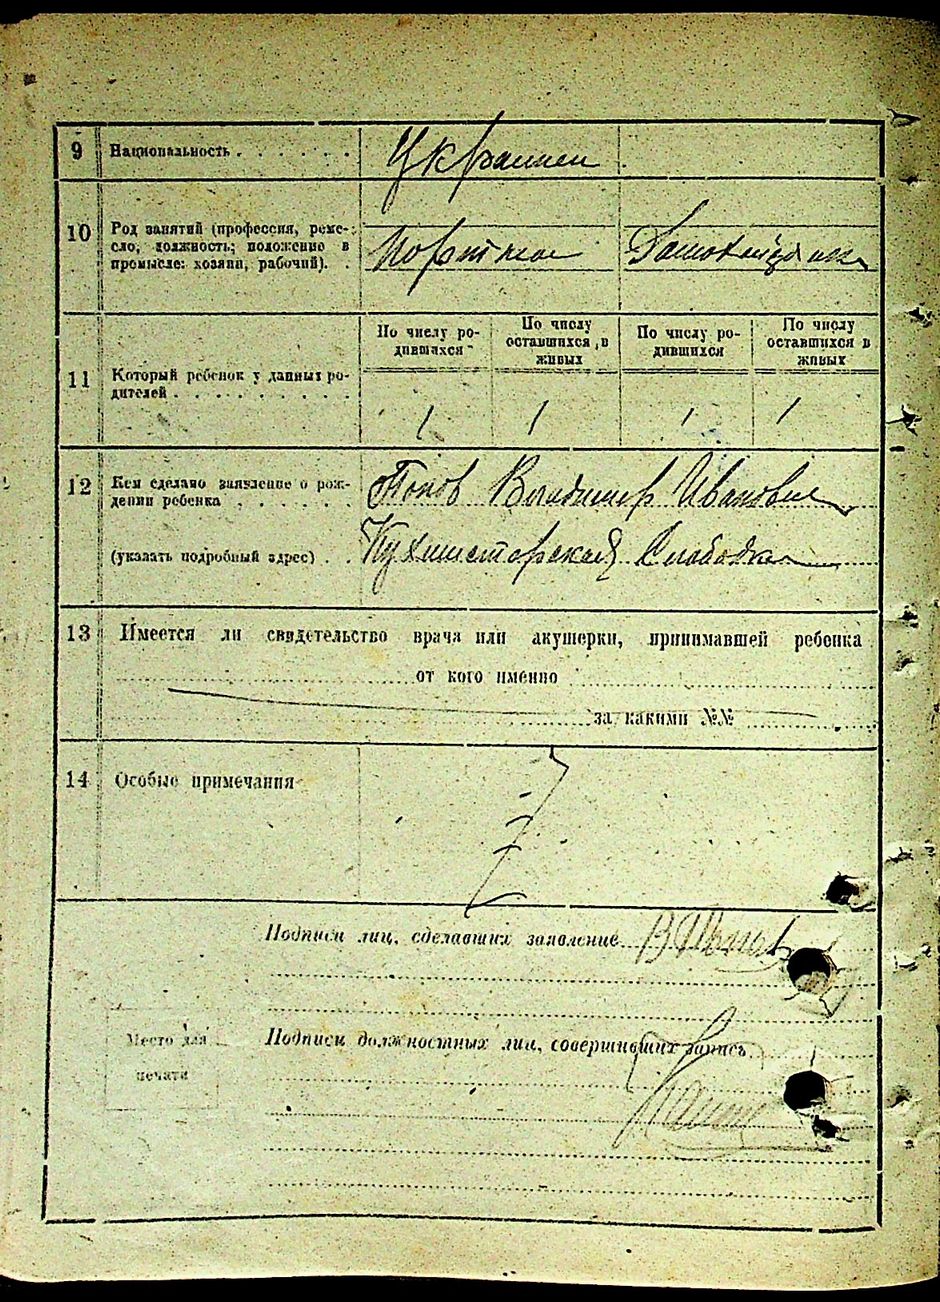 9 Национальность . . . . . . Украинец
10 Род занятий (профессия, реме-
сло, должность; положение в
промысле: хозяин, рабочий). . Портной Домохозяйка
По числу ро-
дившихся По числу
оставшихся в
живых По числу ро-
дившихся По числу
оставшихся в
живых
11 Который ребенок у данных ро-
дителей . . . . . . . . . .
1 1 1 1
12 Кем сделано заявление о рож-
дении ребенка . . . . . . Попов Владимир Иванович
(указать подробный адрес) . . Кухмистерская Слободка
13 Имеется ли свидетельство врача или акушерки, принимавшей ребенка
от кого именно
за какими №№
14 Особые примечания
Подписи лиц, сделавших заявление
Подписи должностных лиц, совершивших запись
Место для
печати